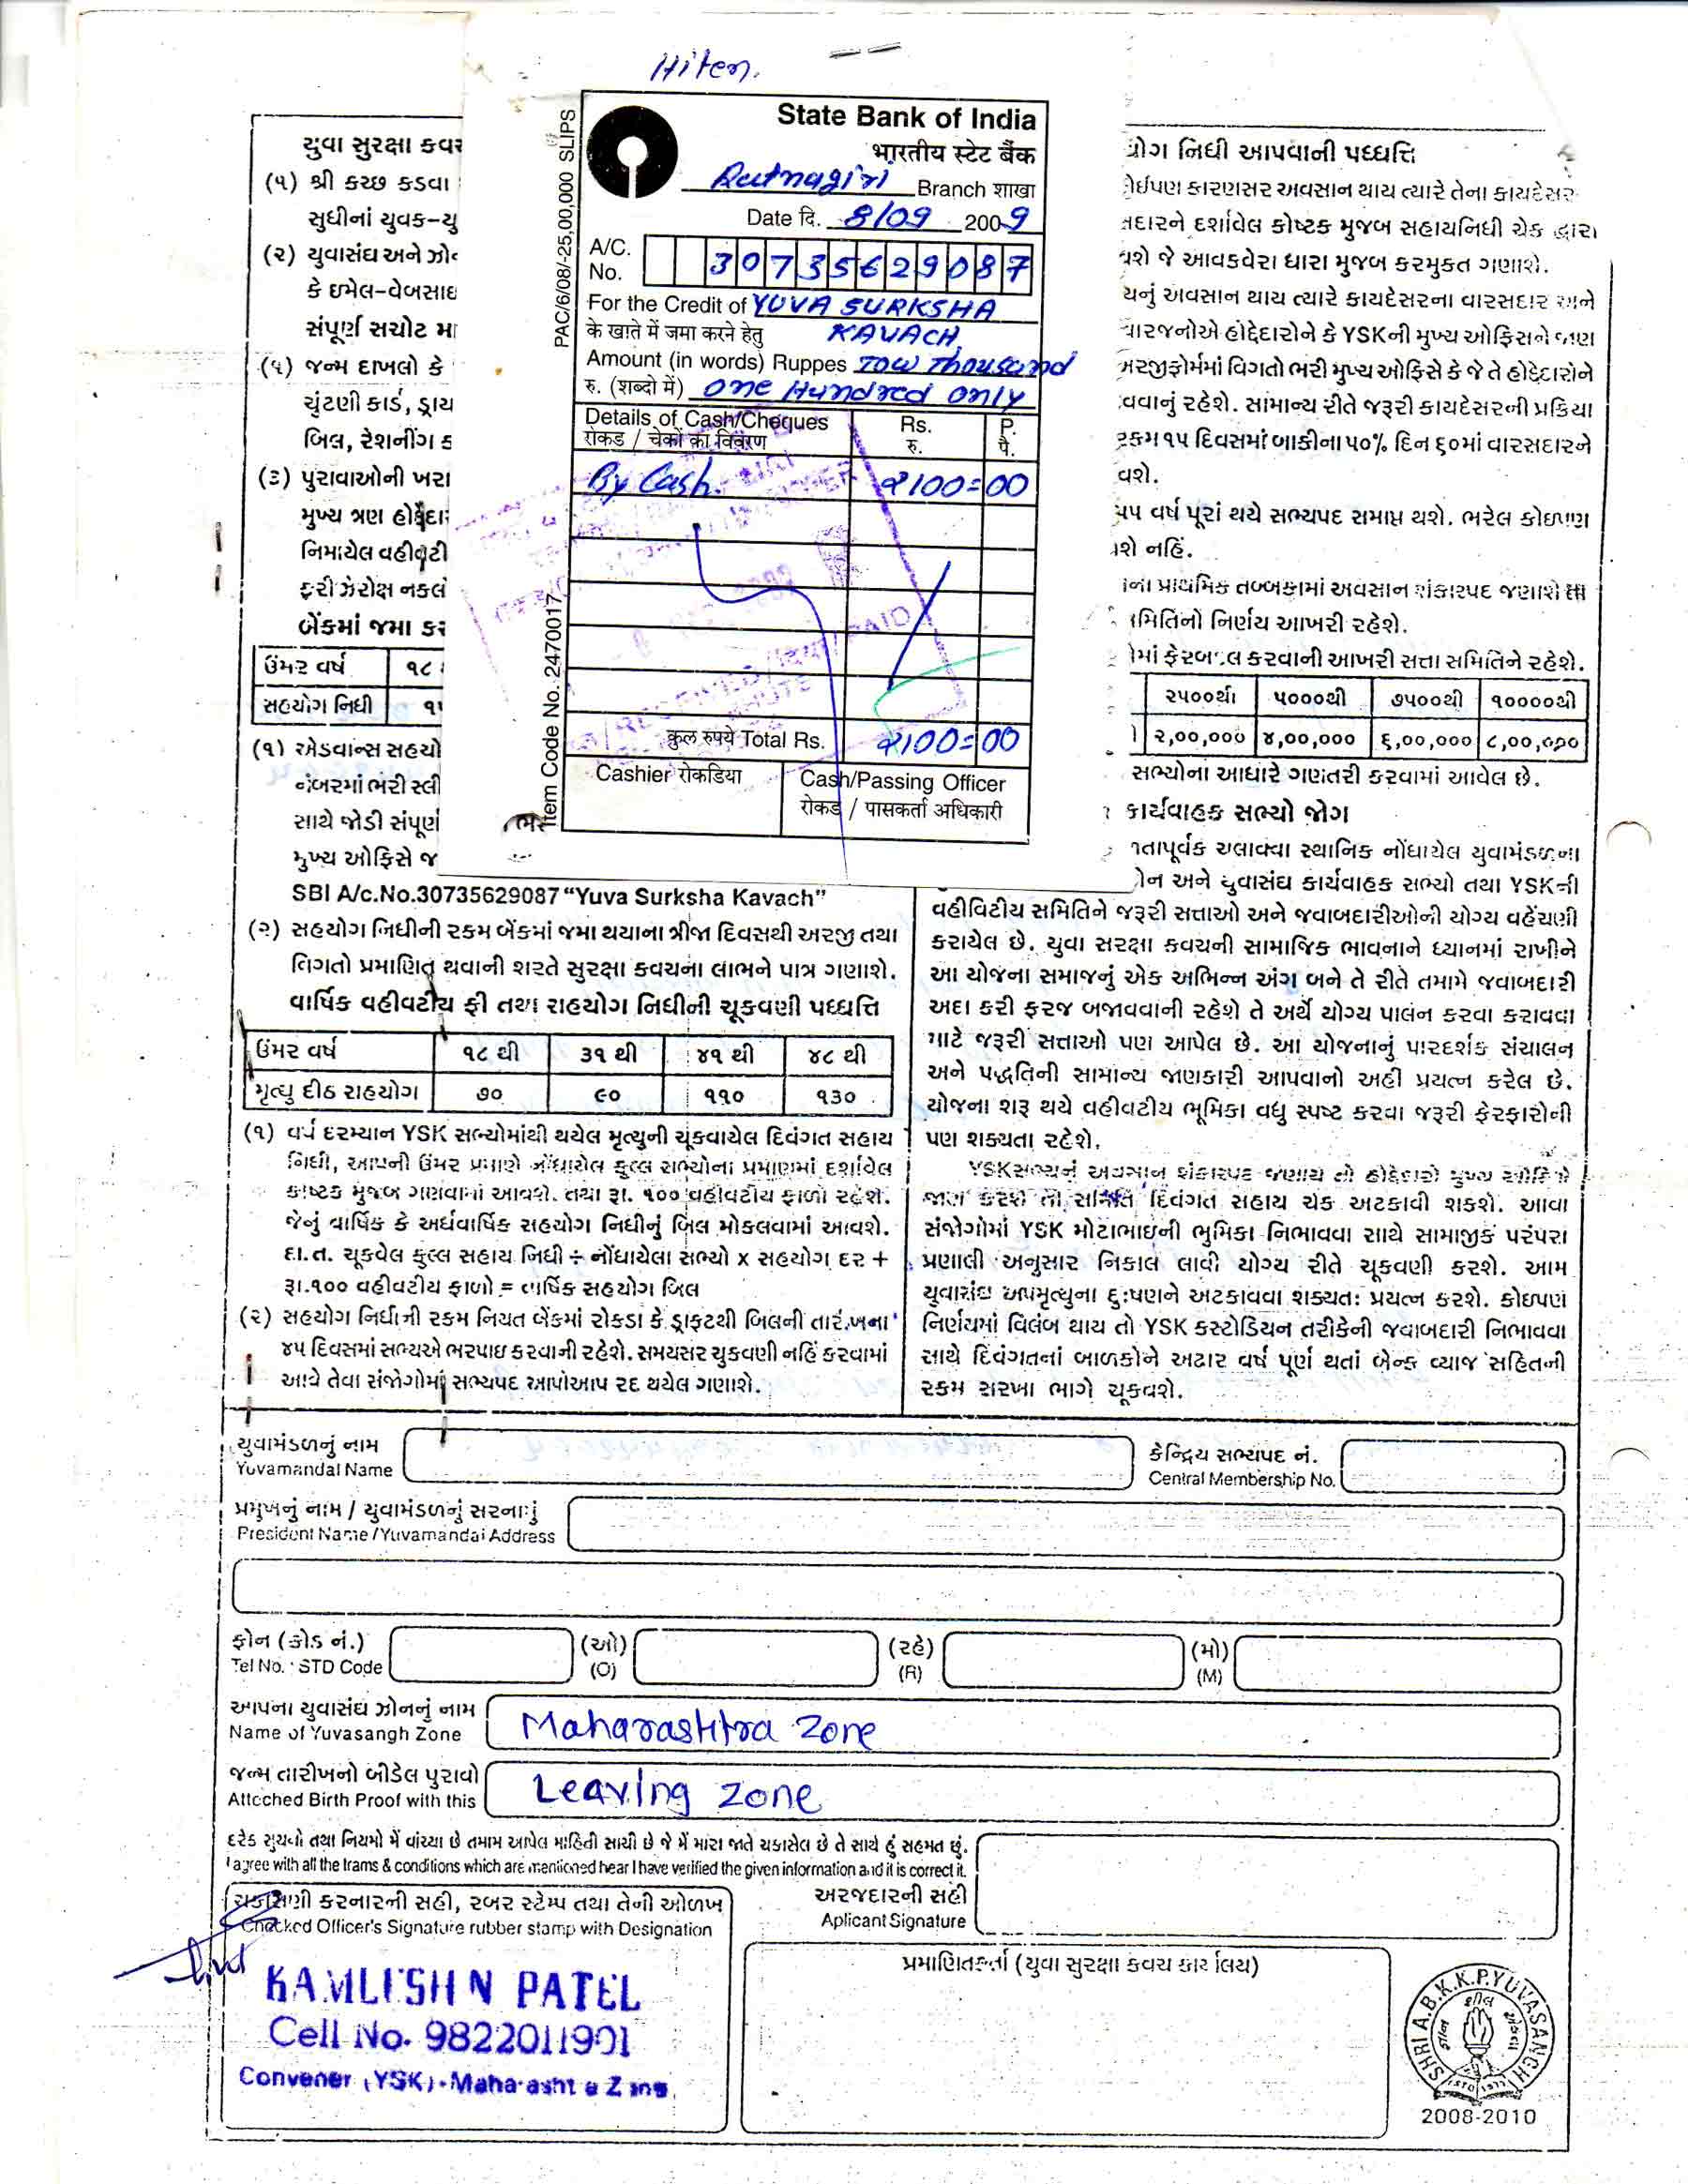 Hiten.
State Bank of India
भारतीय स्टेट बैंक
Ratnagiri Branch शाखा
Date दि. 8/09 2009
A/C. No. 30735629087
For the Credit of YUVA SURKSHA
के खाते में जमा करने हेतु KAVACH
Amount (in words) Ruppes TOW Thousand
रु. (शब्दो में) One Hundred only
Details of Cash/Cheques Rs. P.
रोकड / चेकों का विवरण रु. पै.
By Cash. 2100=00
कुल रुपये Total Rs. 2100=00
Cashier रोकडिया Cash/Passing Officer
रोकड / पासकर्ता अधिकारी
PAC/6/08/-25,00,000 SLIPS
Item Code No. 2470017
યુવા સુરક્ષા કવચ
(૧) શ્રી કચ્છ કડવા
સુધીનાં યુવક-યુ
(૨) યુવાસંઘ અને ઝોન
કે ઇમેલ-વેબસાઇ
સંપૂર્ણ સચોટ મા
(૫) જન્મ દાખલો કે
ચુંટણી કાર્ડ, ડ્રાય
બિલ, રેશનીંગ ક
(૩) પુરાવાઓની ખરા
મુખ્ય ત્રણ હોદ્દેદા
નિમાયેલ વહીવટી
ફરી ઝેરોક્ષ નકલો
બેંકમાં જમા કર
ઉંમર વર્ષ ૧૮
સહયોગ નિધી ૧૫
(૧) એડવાન્સ સહયો
નંબરમાં ભરી સ્લી
સાથે જોડી સંપૂર્ણ
મુખ્ય ઓફિસે જ
SBI A/c.No.30735629087 "Yuva Surksha Kavach"
(૨) સહયોગ નિધીની રકમ બેંકમાં જમા થયાના ત્રીજા દિવસથી અરજી તથા
વિગતો પ્રમાણિત થવાની શરતે સુરક્ષા કવચના લાભને પાત્ર ગણાશે.
વાર્ષિક વહીવટીય ફી તથા સહયોગ નિધીની ચૂકવણી પધ્ધતિ
ઉંમર વર્ષ ૧૮ થી ૩૧ થી ૪૧ થી ૪૮ થી
મૃત્યુ દીઠ સહયોગ ૭૦ ૯૦ ૧૧૦ ૧૩૦
(૧) વર્ષ દરમ્યાન YSK સભ્યોમાંથી થયેલ મૃત્યુની ચૂકવાયેલ દિવંગત સહાય
નિધી, આપની ઉંમર પ્રમાણે નોંધાયેલ કુલ્લ સભ્યોના પ્રમાણમાં દર્શાવેલ
કોષ્ટક મુજબ ગણવામાં આવશે. તથા રૂા. ૧૦૦ વહીવટીય ફાળો રહેશે.
જેનું વાર્ષિક કે અર્ધવાર્ષિક સહયોગ નિધીનું બિલ મોકલવામાં આવશે.
દા.ત. ચૂકવેલ કુલ્લ સહાય નિધી ÷ નોંધાયેલા સભ્યો x સહયોગ દર +
રૂા.૧૦૦ વહીવટીય ફાળો = વાર્ષિક સહયોગ બિલ
(૨) સહયોગ નિધીની રકમ નિયત બેંકમાં રોકડા કે ડ્રાફટથી બિલની તારીખના
૪૫ દિવસમાં સભ્યએ ભરપાઇ કરવાની રહેશે. સમયસર ચુકવણી નહિં કરવામાં
આવે તેવા સંજોગોમાં સભ્યપદ આપોઆપ રદ થયેલ ગણાશે.
યોગ નિધી આપવાની પધ્ધતિ
કોઈપણ કારણસર અવસાન થાય ત્યારે તેના કાયદેસર
સદારને દર્શાવેલ કોષ્ટક મુજબ સહાયનિધી ચેક દ્વારા
વશે જે આવકવેરા ધારા મુજબ કરમુકત ગણાશે.
યનું અવસાન થાય ત્યારે કાયદેસરના વારસદાર અને
વારજનોએ હોદ્દેદારોને કે YSKની મુખ્ય ઓફિસને જાણ
અરજીફોર્મમાં વિગતો ભરી મુખ્ય ઓફિસે કે જે તે હોદ્દેદારોને
વવાનું રહેશે. સામાન્ય રીતે જરૂરી કાયદેસરની પ્રક્રિયા
રકમ ૧૫ દિવસમાં બાકીના ૫૦% દિન ૬૦માં વારસદારને
વશે.
૫૫ વર્ષ પૂરાં થયે સભ્યપદ સમાપ્ત થશે. ભરેલ કોઇપણ
શે નહિં.
ના પ્રાથમિક તબ્બકામાં અવસાન શંકાસ્પદ જણાશે તો
મિતિનો નિર્ણય આખરી રહેશે.
માં ફેરબદલ કરવાની આખરી સત્તા સમિતિને રહેશે.
૨૫૦૦થી ૫૦૦૦થી ૭૫૦૦થી ૧૦૦૦૦થી
૨,૦૦,૦૦૦ ૪,૦૦,૦૦૦ ૬,૦૦,૦૦૦ ૮,૦૦,૦૦૦
સભ્યોના આધારે ગણતરી કરવામાં આવેલ છે.
કાર્યવાહક સભ્યો જોગ
તાપૂર્વક ચલાવવા સ્થાનિક નોંધાયેલ યુવામંડળના
ોન અને યુવાસંઘ કાર્યવાહક સભ્યો તથા YSKની
વહીવિટીય સમિતિને જરૂરી સત્તાઓ અને જવાબદારીઓની યોગ્ય વહેંચણી
કરાયેલ છે. યુવા સરક્ષા કવચની સામાજિક ભાવનાને ધ્યાનમાં રાખીને
આ યોજના સમાજનું એક અભિન્ન અંગ બને તે રીતે તમામે જવાબદારી
અદા કરી ફરજ બજાવવાની રહેશે તે અર્થે યોગ્ય પાલન કરવા કરાવવા
માટે જરૂરી સત્તાઓ પણ આપેલ છે. આ યોજનાનું પારદર્શક સંચાલન
અને પદ્ધતિની સામાન્ય જાણકારી આપવાનો અહીં પ્રયત્ન કરેલ છે.
યોજના શરૂ થયે વહીવટીય ભૂમિકા વધુ સ્પષ્ટ કરવા જરૂરી ફેરફારોની
પણ શક્યતા રહેશે.
YSKસભ્યનું અવસાન શંકાસ્પદ જણાય તો હોદ્દેદારો મુખ્ય ઓફિસે
જાણ કરશે તો સમિતિ દિવંગત સહાય ચેક અટકાવી શકશે. આવા
સંજોગોમાં YSK મોટાભાઇની ભુમિકા નિભાવવા સાથે સામાજીક પરંપરા
પ્રણાલી અનુસાર નિકાલ લાવી યોગ્ય રીતે ચૂકવણી કરશે. આમ
યુવાસંઘ અપમૃત્યુના દુઃષણને અટકાવવા શક્યતઃ પ્રયત્ન કરશે. કોઇપણ
નિર્ણયમાં વિલંબ થાય તો YSK કસ્ટોડિયન તરીકેની જવાબદારી નિભાવવા
સાથે દિવંગતનાં બાળકોને અઢાર વર્ષ પૂર્ણ થતાં બેન્ક વ્યાજ સહિતની
રકમ સરખા ભાગે ચૂકવશે.
યુવામંડળનું નામ
Yuvamandal Name
કેન્દ્રિય સભ્યપદ નં.
Central Membership No.
પ્રમુખનું નામ / યુવામંડળનું સરનામું
President Name /Yuvamandal Address
ફોન (કોડ નં.) (ઓ) (રહે) (મો)
Tel No. : STD Code (O) (R) (M)
આપના યુવાસંઘ ઝોનનું નામ
Name of Yuvasangh Zone Maharashtra Zone
જન્મ તારીખનો બીડેલ પુરાવો
Attcched Birth Proof with this Leaving zone
દરેક સુચનો તથા નિયમો મેં વાંચ્યા છે તમામ આપેલ માહિતી સાચી છે જે મેં મારા જાતે ચકાસેલ છે તે સાથે હું સહમત છું.
I agree with all the trams & conditions which are mentioned hear I have verified the given information and it is correct it.
ચકાસણી કરનારની સહી, રબર સ્ટેમ્પ તથા તેની ઓળખ
Checked Officer's Signature rubber stamp with Designation
અરજદારની સહી
Aplicant Signature
KAMLESH N PATEL
Cell No. 9822011901
Convener (YSK) - Maharashtra Zone
પ્રમાણિતકર્તા (યુવા સુરક્ષા કવચ કાર્યાલય)
SHRI A.B.K.K.P.YUVASANGH
2008-2010